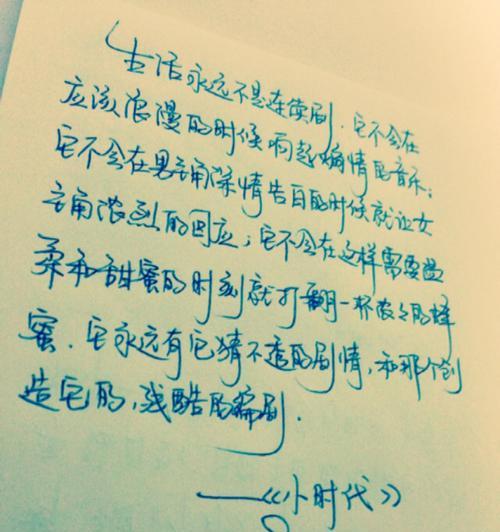 生活永远不是连续剧.它不会在
应该浪漫的时候响起煽情的音乐;
它不会在男主角深情告白的时候就让女
主角浓烈的回应;它不会在这样需要温
柔和甜蜜的时刻就打翻一杯浓浓的蜂
蜜.它永远有它猜不透的剧情,和那个创
造它的,残酷的编剧.
——《小时代》